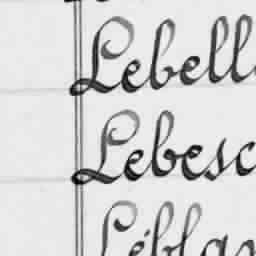 Lebell
Lebesc
Léblan